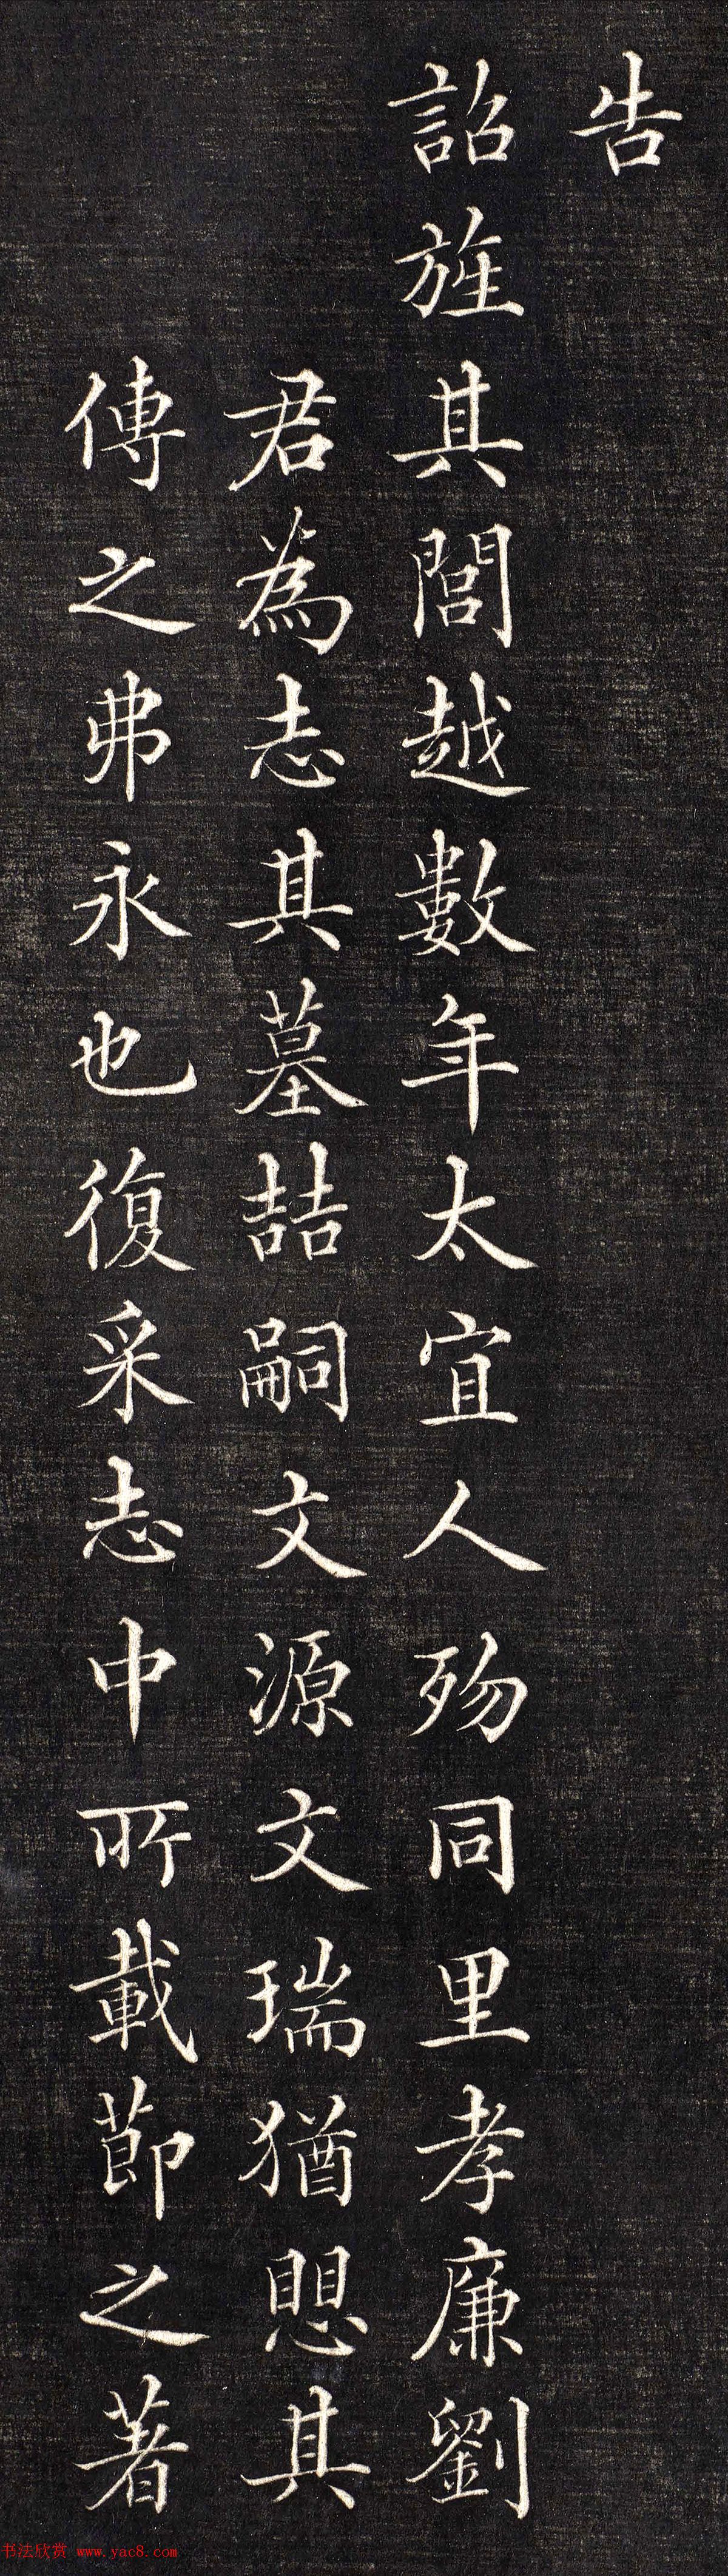 告
詔旌其閭越數年太宜人殁同里孝廉劉
君為志其墓喆嗣文源文瑞猶愳其
傳之弗永也復采志中所載節之著
书法欣赏 www.yac8.com